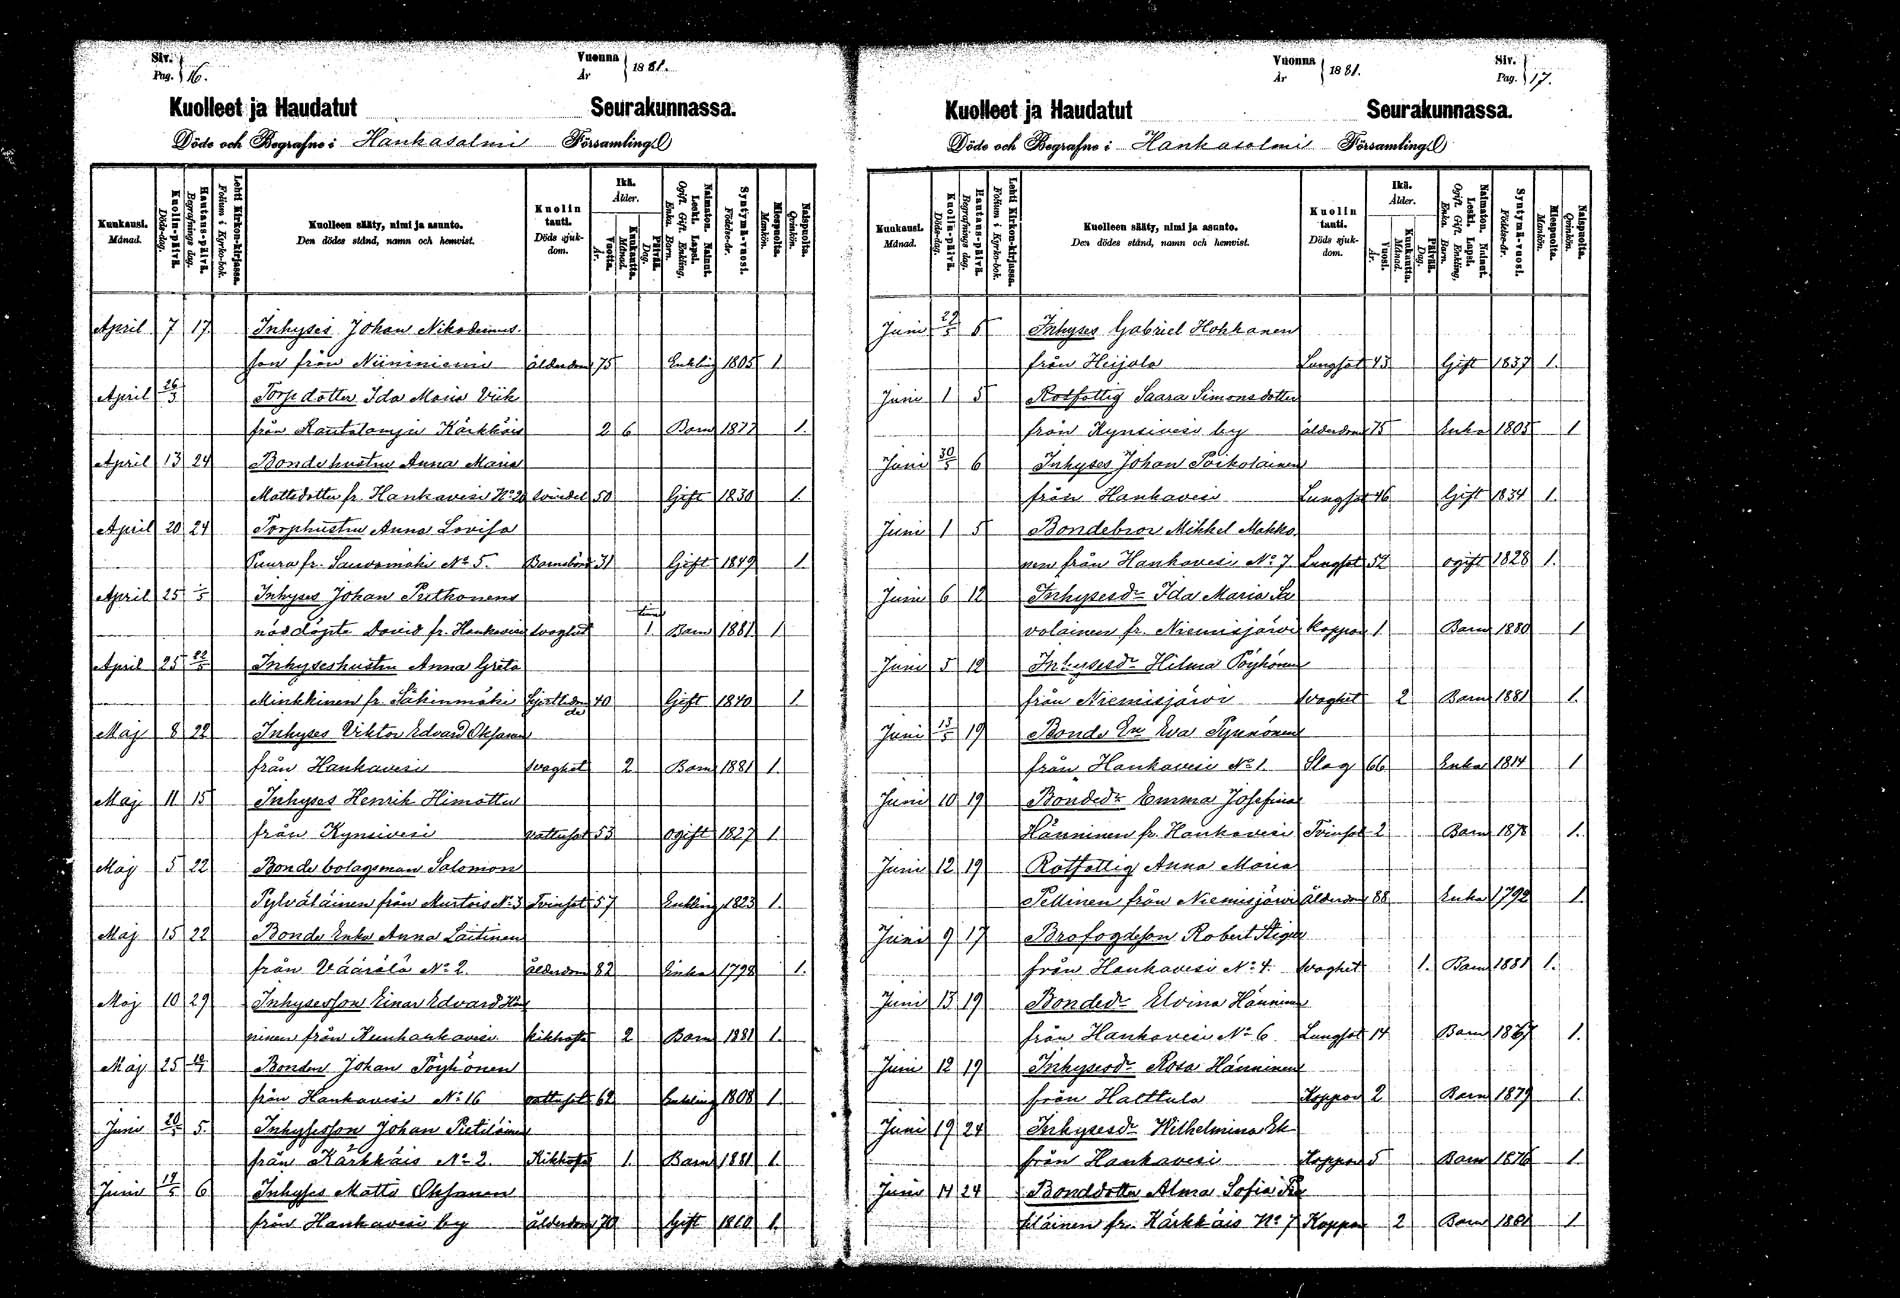 Siv. Pag. 16.
Vuonna År 1881.
Kuolleet ja Haudatut Seurakunnassa.
Döde och Begrafne i Hankasalmi Församling.
Kuukausi. Månad.
Kuolin-päivä. Döds-dag.
Hautaus-päivä. Begrafnings dag.
Lehti Kirkon-kirjassa. Folium i Kyrko-bok.
Kuolleen sääty, nimi ja asunto. Den dödes stånd, namn och hemvist.
Kuolin tauti. Döds sjuk-dom.
Ikä. Ålder.
Vuotta. År.
Kuukautta. Månad.
Päivää. Dag.
Naimaton. Nainut. Leski. Lapsi. Ogift. Gift. Enkling. Enka. Barn.
Syntymä-vuosi. Födelse-år.
Miespuolia. Mankön.
Naispuolia. Qvinkön.
April 7 17 Inhyses Johan Nikodemus-
son från Niinimiemi ålderdom 75 Enkling 1805 1.
April 26/3 Torpdotter Ida Maria Viik
från Rautalampi Kärkkäis 2 6 Barn 1877 1.
April 13 24 Bondehustru Anna Maria
Mattsdotter fr. Hankavesi No 20 svindel 50 Gift 1830 1.
April 20 24 Torphustru Anna Lovisa
Puura fr. Sauvomäki No 5. Barnsbörd 31 Gift 1849 1
April 25 1/5 Inhyses Johan Parthonens
nöddöpte David fr. Hankavesi svaghet 1 Barn 1881 1
April 25 22/5 Inhyseshustru Anna Greta
Minkkinen fr. Säkinmäki 40 Gift 1840 1.
Maj 8 22 Inhyses Viktor Edvard Oksanen
från Hankavesi svaghet 2 Barn 1881 1.
Maj 11 15 Inhyses Henrik Himottu
från Kynsivesi vattusot 53 ogift 1827 1
Maj 5 22 Bonde bolagsman Salomon
Pylväläinen från Murtois No 3 Tvinsot 57 Enkling 1823 1.
Maj 15 22 Bonde Enka Anna Laitinen
från Väärälä No 2. ålderdom 82 Enka 1798 1.
Maj 10 29 Inhysesson Einar Edvard Hän
ninen från Kuuhankavesi kikhosta 2 Barn 1881 1.
Maj 25 Bonden Johan Pöyhönen
från Hankavesi No 16 vattusot 62 Enkling 1808 1
Juni 20/5 5. Inhysesson Johan Pietiläinen
från Kärkkäis No 2. Kikhosta 1. Barn 1881 1.
Juni 14/5 6 Inhyses Matts Oksanen
från Hankavesi by ålderdom 70 Gift 1810 1.
Vuonna År 1881.
Siv. Pag. 17.
Kuolleet ja Haudatut Seurakunnassa.
Döde och Begrafne i Hankasalmi Församling.
Kuukausi. Månad.
Kuolin-päivä. Döds-dag.
Hautaus-päivä. Begrafnings dag.
Lehti Kirkon-kirjassa. Folium i Kyrko-bok.
Kuolleen sääty, nimi ja asunto. Den dödes stånd, namn och hemvist.
Kuolin tauti. Döds sjuk-dom.
Ikä. Ålder.
Vuosi. År.
Kuukautta. Månad.
Päivää. Dag.
Naimaton. Nainut. Leski. Lapsi. Ogift. Gift. Enkling. Enka. Barn.
Syntymä-vuosi. Födelse-år.
Miespuolia. Mankön.
Naispuolia. Qvinkön.
Juni 29/5 5 Inhyses Gabriel Hokkanen
från Heijala Lungsot 43 Gift 1837 1.
Juni 1 5 Rotfattig Saara Simonsdotter
från Kynsivesi by ålderdom 75 Enka 1805 1
Juni 30/5 6 Inhyses Johan Poikolainen
från Hankavesi Lungsot 46 Gift 1834 1.
Juni 1 5 Bondebror Mikkel Makko
nen från Hankavesi No 7 Lungsot 52 ogift 1828 1.
Juni 6 12 Inhysesdr Ida Maria Sa
volainen fr. Niemisjärvi koppor 1 Barn 1880 1
Juni 5 12 Inhysesdr Hilma Pöyhönen
från Niemisjärvi svaghet 2 Barn 1881 1.
Juni 13/5 19 Bonde Eva
från Hankavesi No 1. Slag 66 Enka 1814 1
Juni 10 19 Bondedr Emma Josefina
Hänninen fr. Hankavesi Tvinsot 2 Barn 1878 1.
Juni 12 19 Rotfattig Anna Maria
Pellinen från Niemisjärvi Ålderdom 88 Enka 1792 1.
Juni 9 17 Brofogdeson Robert
från Hankavesi No 4. svaghet 1. Barn 1881 1.
Juni 13 19 Bondedr Elvina Hänninen
från Hankavesi No 6 Lungsot 14 Barn 1867 1.
Juni 12 19 Inhysesdr Rosa Hänninen
från Halttula Koppor 2 Barn 1879 1.
Juni 19 24 Inhysesdr Wilhelmina Ek
från Hankavesi Koppor 5 Barn 1876 1.
Juni 14 24 Bonddotter Alma Sofia
fr. Kärkkäis No 7 Koppor 2 Barn 1881 1